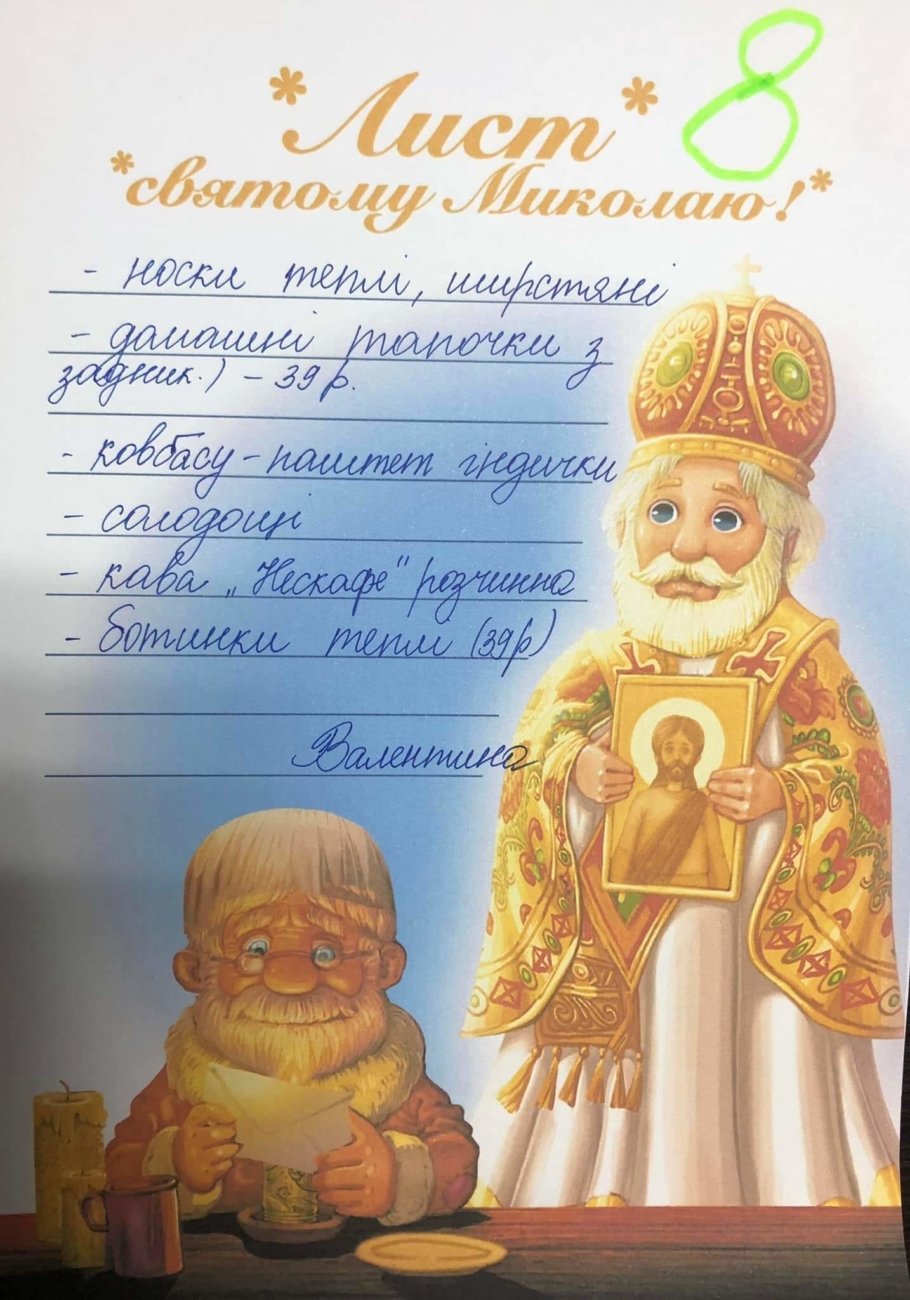 8
Лист
святому Миколаю!
- носки теплі, ширстяні
- домашні тапочки з
задник.) - 39 р.
- ковбасу - паштет індички
- солодощі
- кава „Нескафе" розчинна
- ботинки теплі (39р)
Валентина